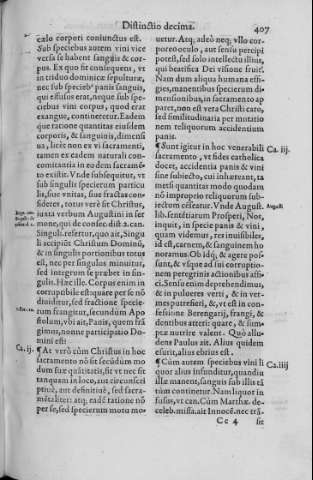 Distinctio decima. 407
cælo corpori coniunctus est.
Sub speciebus autem vini vice
versa se habent sanguis & cor-
pus. Ex quo fit consequens, vt
in triduo dominicæ sepulturæ,
nec sub specieb⁹ panis sanguis,
qui effusus erat, neque sub spe-
ciebus vini corpus, quod erat
exangue, contineretur. Eadem
que ratione quantitas eiusdem
corporis, & sanguinis, dimensi
us, licèt non ex vi sacramenti,
tamen ex eadem naturali con-
comitantia in eodem sacramē-
to existit. Vnde subsequitur, vt
sub singulis speciernm particu
lis, siue vnitas, siue fractas con-
sideres, totus verè sit Christus,
iuxta verbum Augustini in ser
mone, qui de consec. dist. 2. can.
Singuli. refertur, quo ait, Singu
li accipiūt Christum Dominū,
& in singulis portionibus totus
est, nec per singulos minuitur,
sed integrum se præbet in sin-
gulis. Hæc ille. Corpus enim in
corruptibile est quare per se nō
diuiditur, sed fractione specie-
rum frangitur, secundùm Apo
stolum, vbi ait, Panis, quem frā
gimus, nonne participatio Do-
mini est
Ca. ij.
¶ At verò cùm Christus in hoc
sacramento nō sit secūdùm mo
dum suæ quātitatis, sit vt nec sit
tanquam in loco, aut circunscri
ptiuè, aut definitiuè, sed sacra-
mētaliter: atq, eadē ratione nō
per se, sed specierum motu mo-
uetur. Atq; adeò neq; vllo cor-
poreo oculo, aut sensu percipi
potest, sed solo intellectu illius,
qui beatifica Dei visione fruit̃.
Nam dum aliqua humana effi-
gies, manentibus specierum di-
mensionibus, in sacramento ap
paret, non est vera Christi caro,
sed similitudinaria per mutatio
nem reliquorum accidentium
panis.
Ca. iij.
¶ Sunt igitur in hoc venerabili
sacramento, vt fides catholica
docet, accidentia panis & vini
sine subiecto, cui inhæreant, ta
metsi quantitas modo quodam
nō improprio reliquorum sub-
iectum censeatur. Vnde August.
August.
lib. sententiarum Prosperi, Nos,
inquit, in specie panis & vini,
quam videmus, res inuisibiles,
id est, carnem, & sanguinem ho
noramus. Ob idq́; & agere pos
sunt, & vsque ad sui corruptio-
nem peregrinis actionibus affi-
ci. Sensu enim deprehendimus,
& in pulueres verti, & in ver-
mes putrefieri, &, vt est in con-
fessione Berengarij, frangi, &
dentibus atteri: quare, & sum-
ptæ nutrire valent. Quò allu-
dens Paulus ait. Alius quidem
esurit, alius ebrius est.
Ca. iiij
¶ Cùm autem speciebus vini li
quor alius infunditur, quandiu
illæ manent, sanguis sub illis tā
tùm continetur. Nam liquor in
fusus, vt can. Cùm Marthæ. de-
celeb. missa. ait Innocē. nec trā-
Cc 4 sit